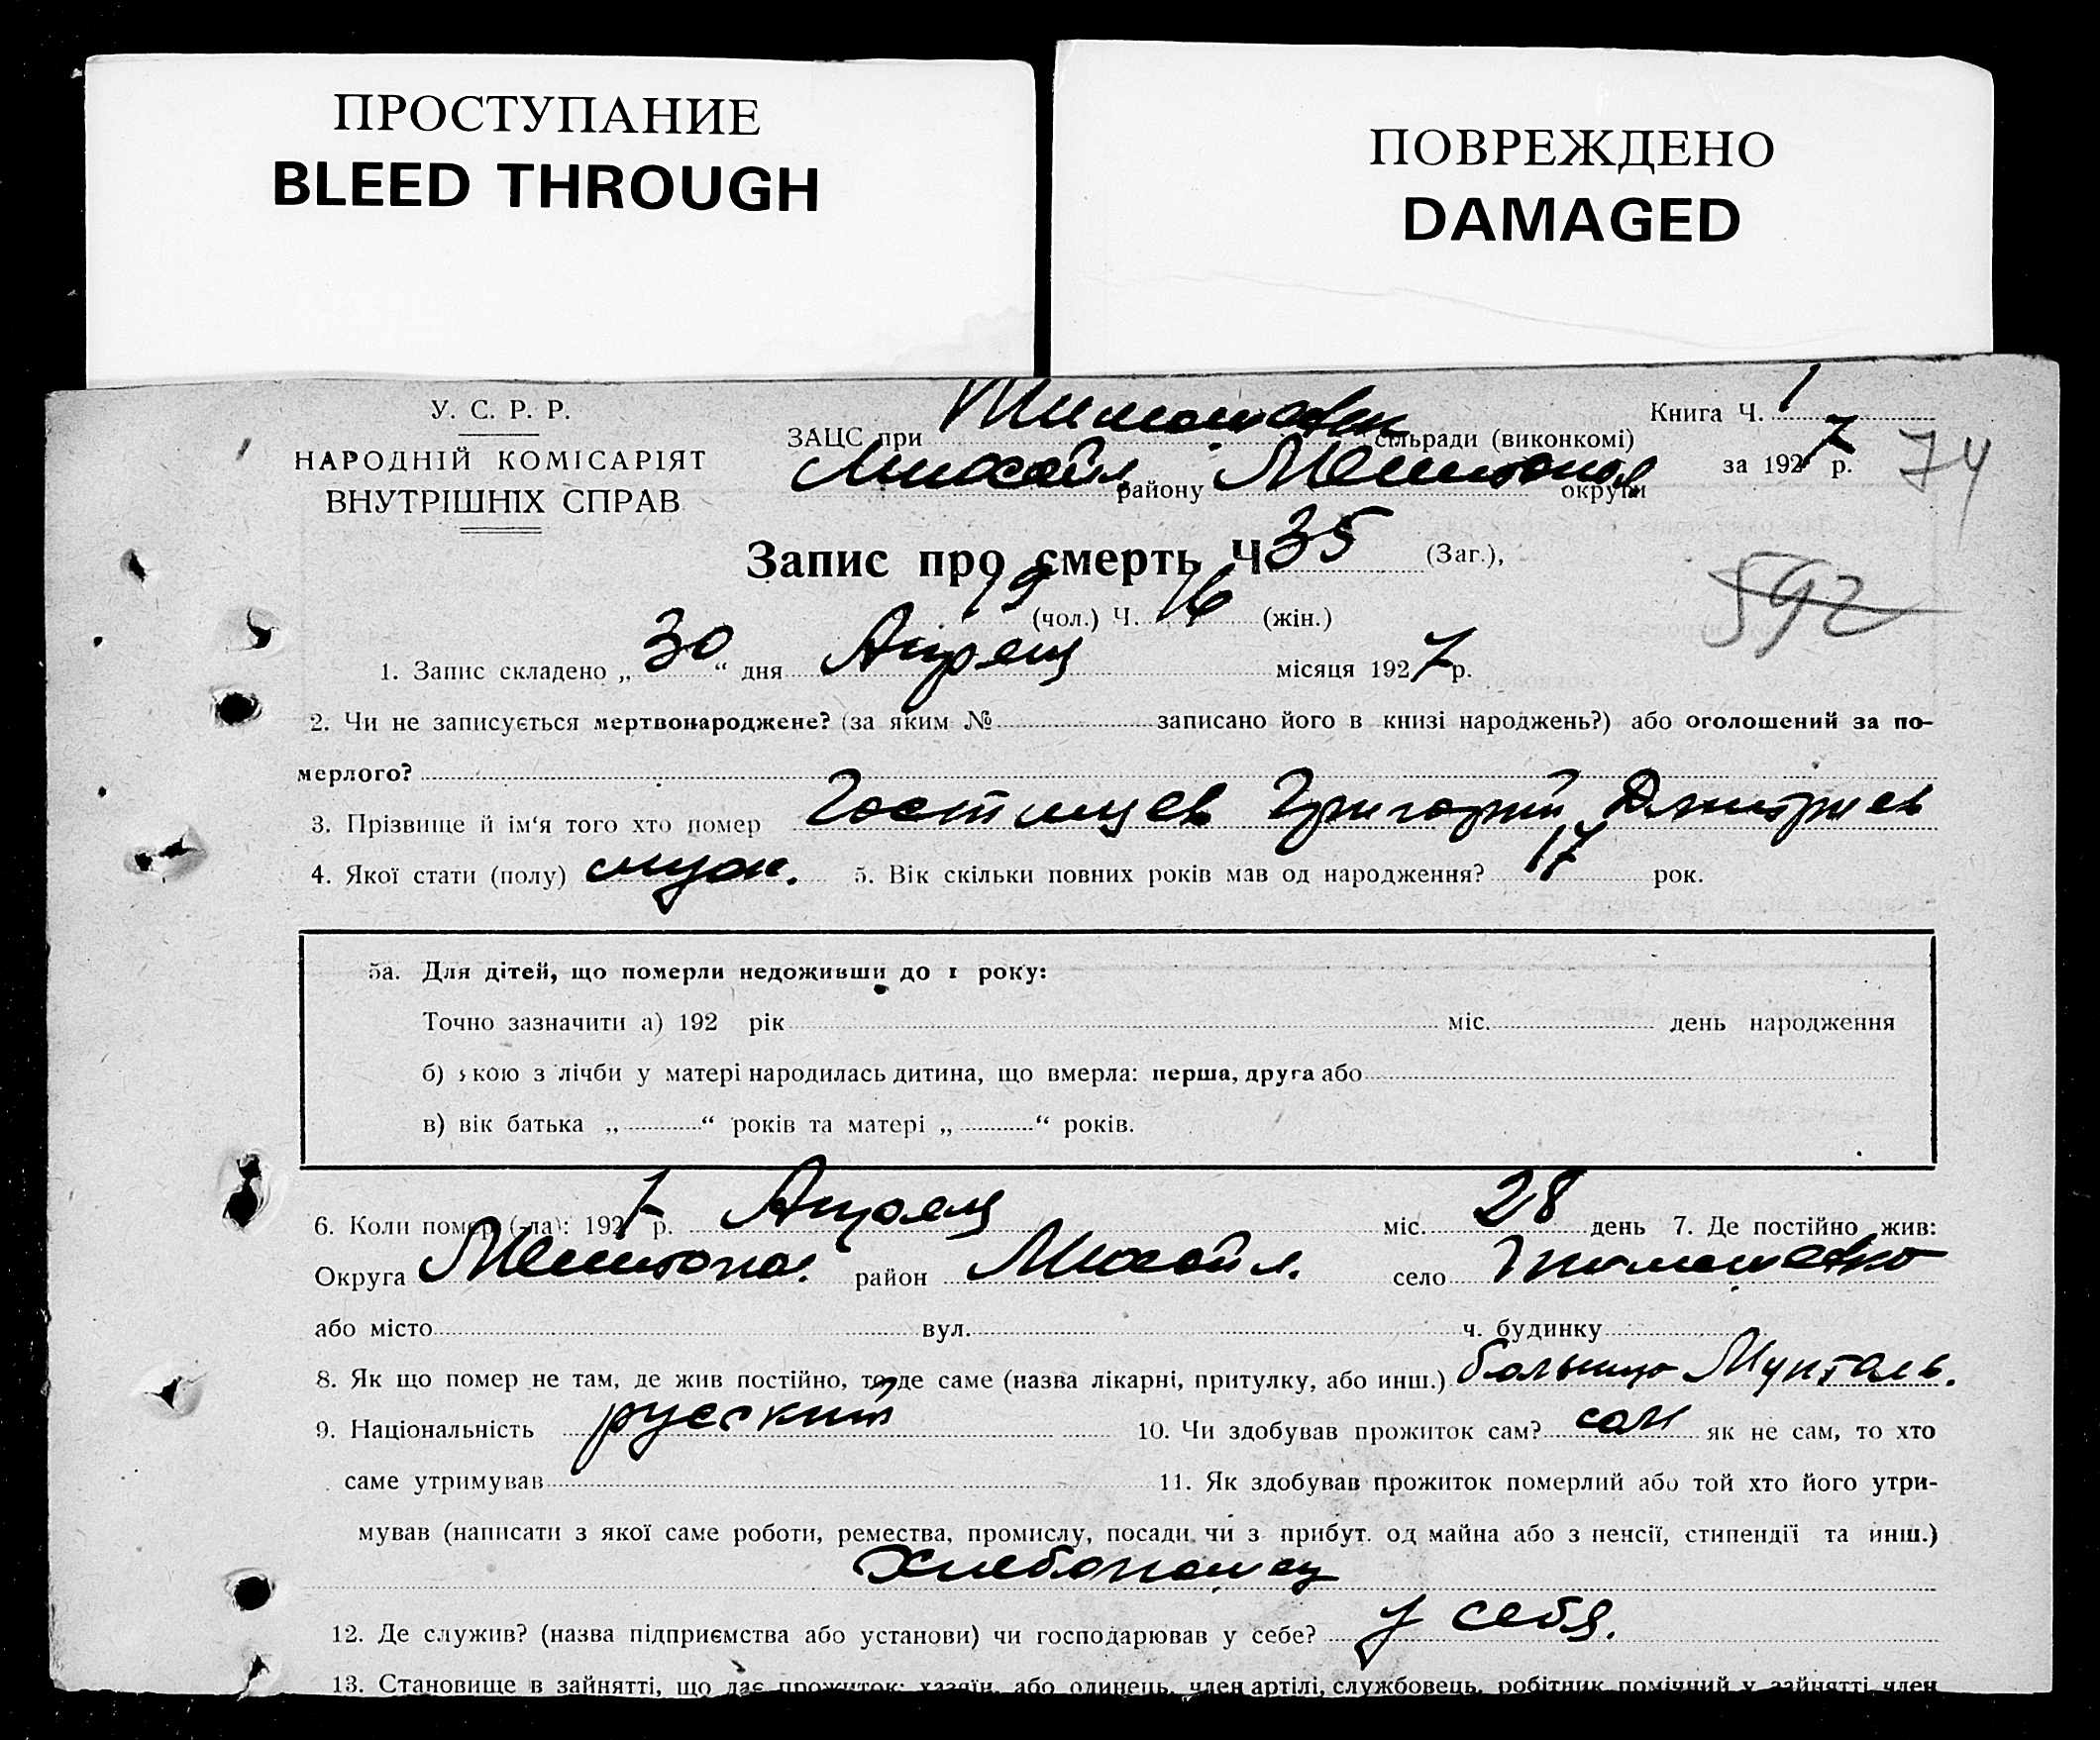 ПРОСТУПАНИЕ
BLEED THROUGH
ПОВРЕЖДЕНО
DAMAGED
У. С. Р. Р.
НАРОДНІЙ КОМІСАРІЯТ
ВНУТРІШНІХ СПРАВ
ЗАЦС при Тимошовк сільради (виконкомі)
Михайл району Мелитопол округи
Книга Ч. 1
за 1927 р. 74
Запис про смерть Ч 35 (Заг.),
19 (чол.) Ч. 16 (жін.)
592
1. Запис складено „ 30 “ дня Апреля місяця 1927 р.
2. Чи не записується мертвонароджене? (за яким № записано його в книзі народжень?) або оголошений за по-
мерлого?
3. Прізвище й ім'я того хто помер Гостищев Григорий Дмитриев
4. Якої стати (полу) муж. 5. Вік скільки повних років мав од народження? 17 рок.
5а. Для дітей, що померли недоживши до 1 року:
Точно зазначити а) 192 рік міс. день народження
б) якою з лічби у матері народилась дитина, що вмерла: перша, друга або
в) вік батька „ “ років та матері „ “ років.
6. Коли помер (-ла): 1927 р. Апреля міс. 28 день 7. Де постійно жив:
Округа Мелитопол. район Михайл. село Тимошовка
або місто вул. ч. будинку
8. Як що помер не там, де жив постійно, то де саме (назва лікарні, притулку, або инш.) больница Мунталь.
9. Національність русский 10. Чи здобував прожиток сам? сам як не сам, то хто
саме утримував 11. Як здобував прожиток померлий або той хто його утри-
мував (написати з якої саме роботи, ремества, промислу, посади чи з прибут. од майна або з пенсії, стипендії та инш.)
Хлебопашец
12. Де служив? (назва підприємства або установи) чи господарював у себе? у себя.
13. Становище в зайнятті, що дає прожиток: хазяїн, або одинець, член артілі, службовець, робітник, помічний у зайнятті член